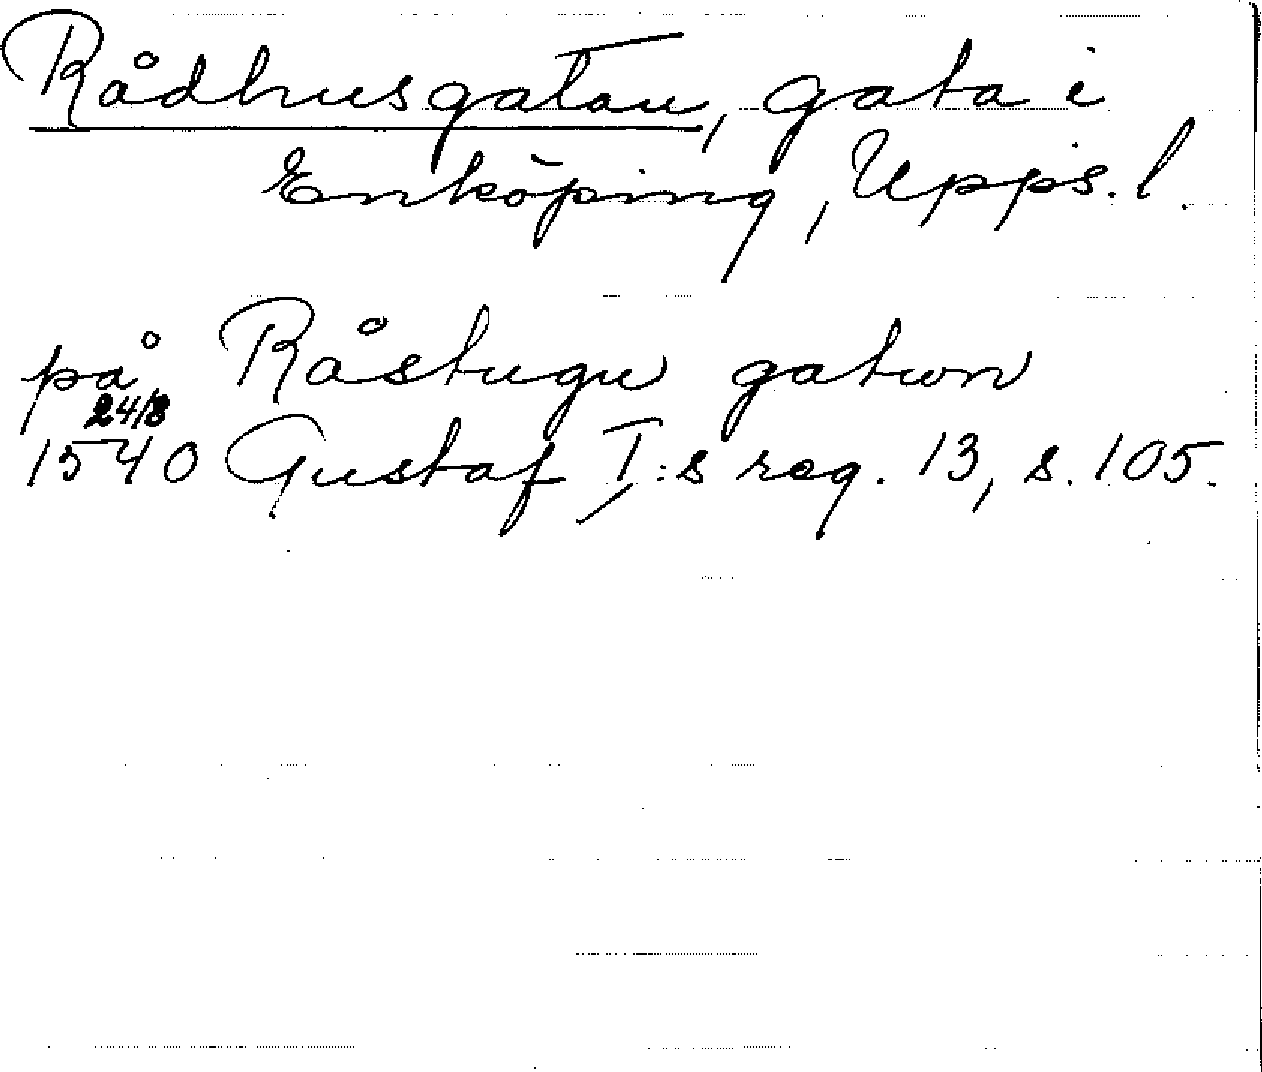 Rådhusgatan, gata i
Enköping, Upps. l.
på Råstugu gatwn
24/8
1540 Gustaf I:s reg. 13, s. 105.